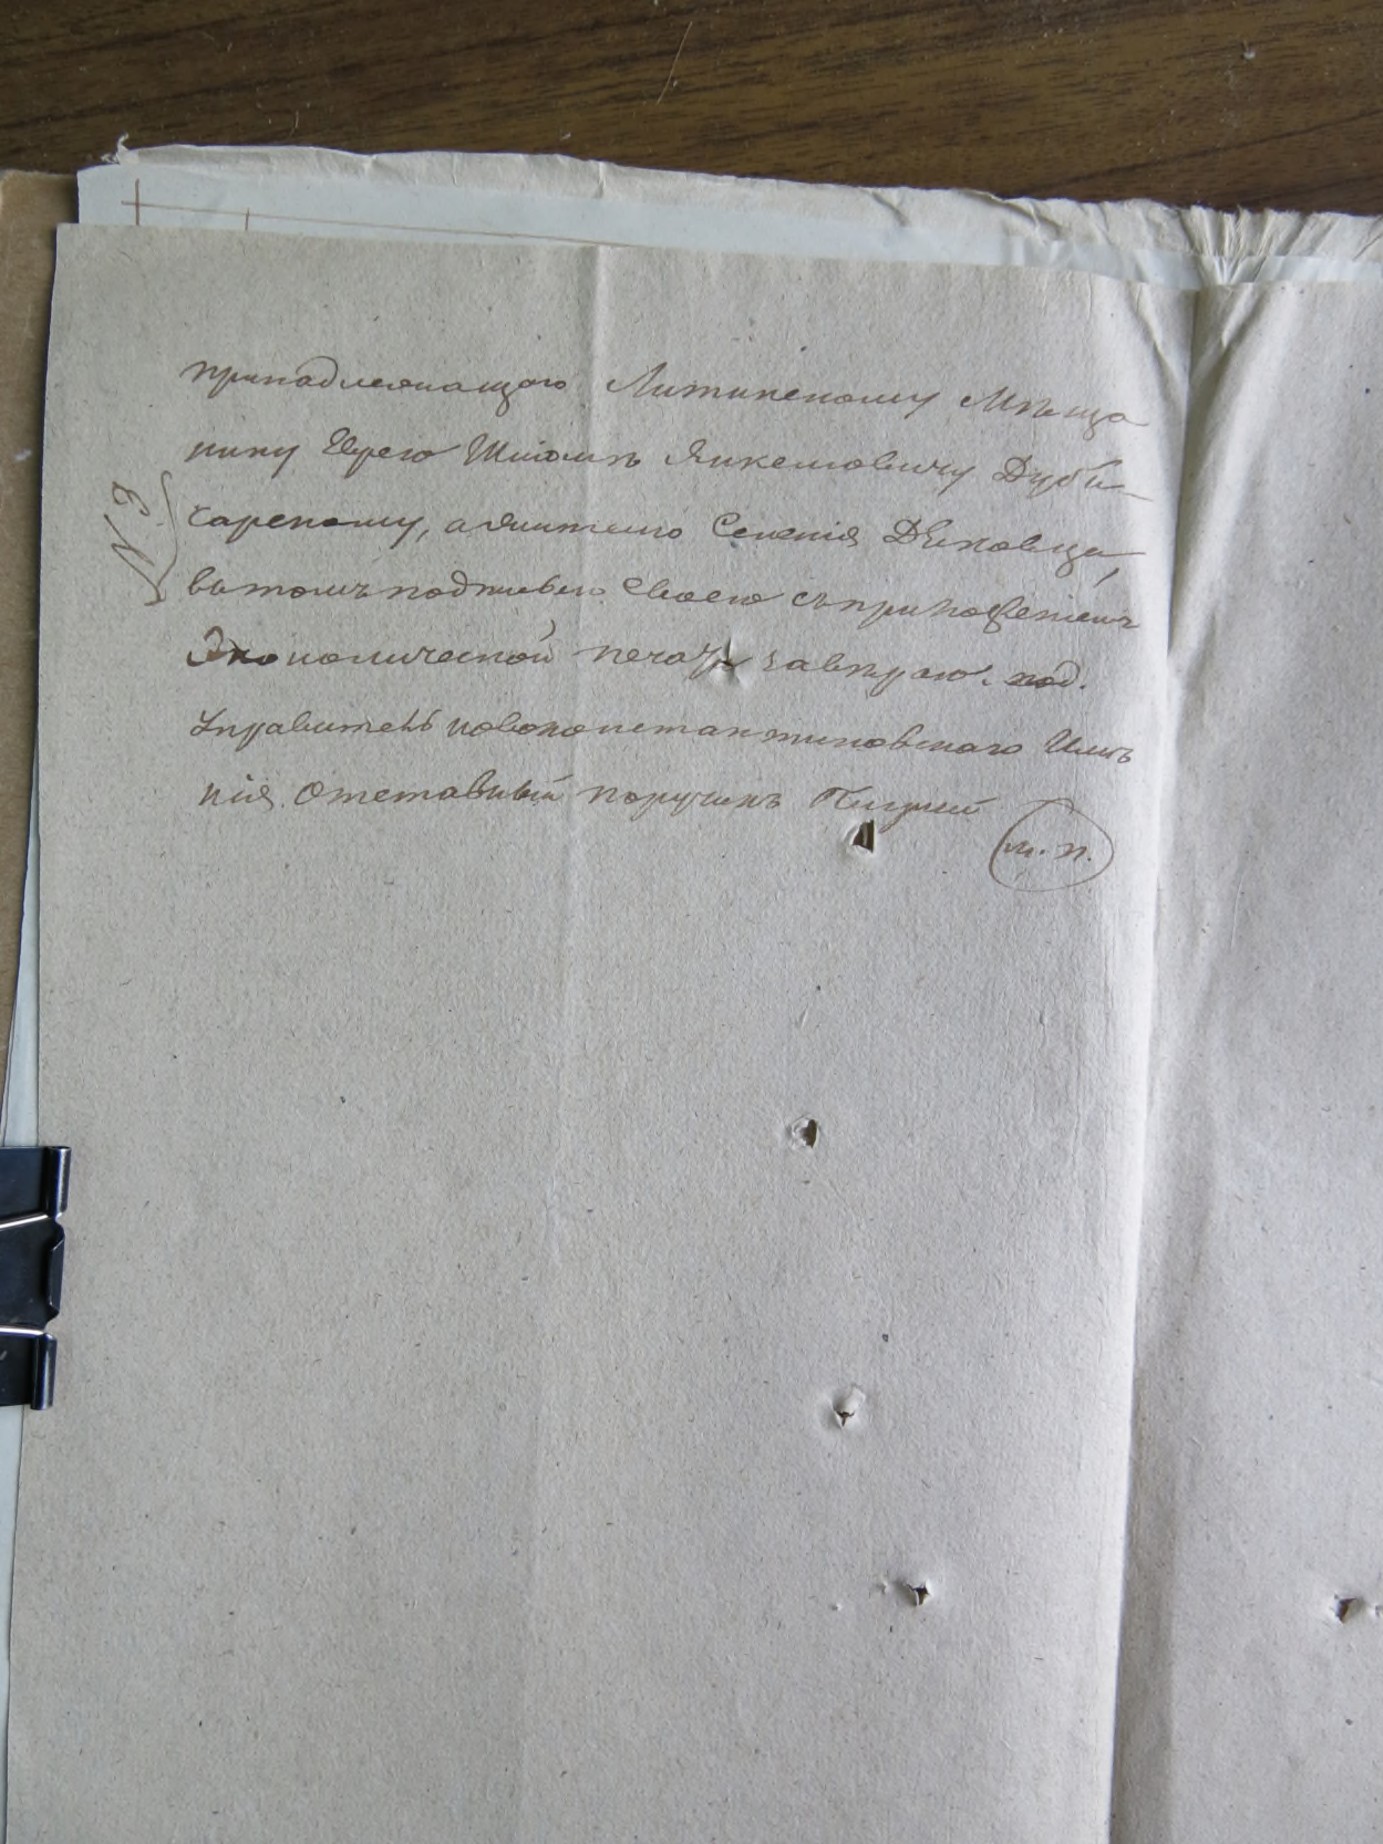 принадлежащаго Литинскому Мѣща
нину Еврею Шліомѣ Янкелювичу Дуби-
сарскому, а жителю Селенія Дяковца,
№ 3
въ томъ подписью Своею съ приложеніемъ
Экономической печати завѣряю. под.
Управитель новоконстантиновскаго Имѣ
нія Отставный поручикъ
м. п.